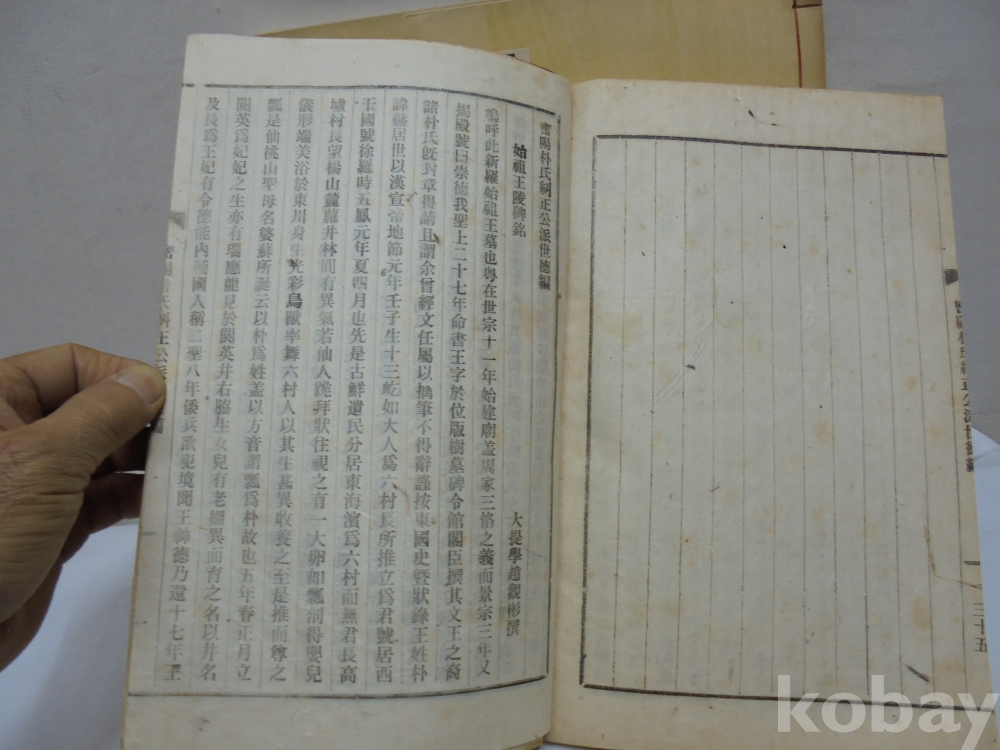 密陽朴氏糾正公派世德編
始祖王陵碑銘
大提學趙觀彬撰
嗚呼此新羅始祖王墓也粤在世宗十一年始建廟盖周家三恪之義而景宗三年又
揭殿號曰崇德我聖上二十七年命書王字於位版樹墓碑令館閣臣撰其文王之裔
諸朴氏旣封章得請且謂余曾經文任屬以摛筆不得辭謹按東國史暨狀錄王姓朴
諱居世以漢宣帝地節元年壬子生十三屹如大人爲六村長所推立爲君號居西
干國號徐羅時五鳳元年夏四月也先是古鮮遺民分居東海濱爲六村而無君長高
墟村長望楊山麓蘿井林間有異氣若仙人跪拜狀往視之有一大卵如瓢剖得嬰兒
儀形端美浴於東川身生光彩鳥獸率舞六村人以其生甚異收養之至是推而尊之
瓢是仙桃山聖母名婆蘇所誕云以朴爲姓盖以方音謂瓢爲朴故也五年春正月立
閼英爲妃妃之生亦有瑞應龍見於閼英井右脇生女兒有老嫗異而育之名以井名
及長爲王妃有令德能內輔國人稱二聖八年倭兵欲犯境聞王神德乃還十七年王
三十五
kobay